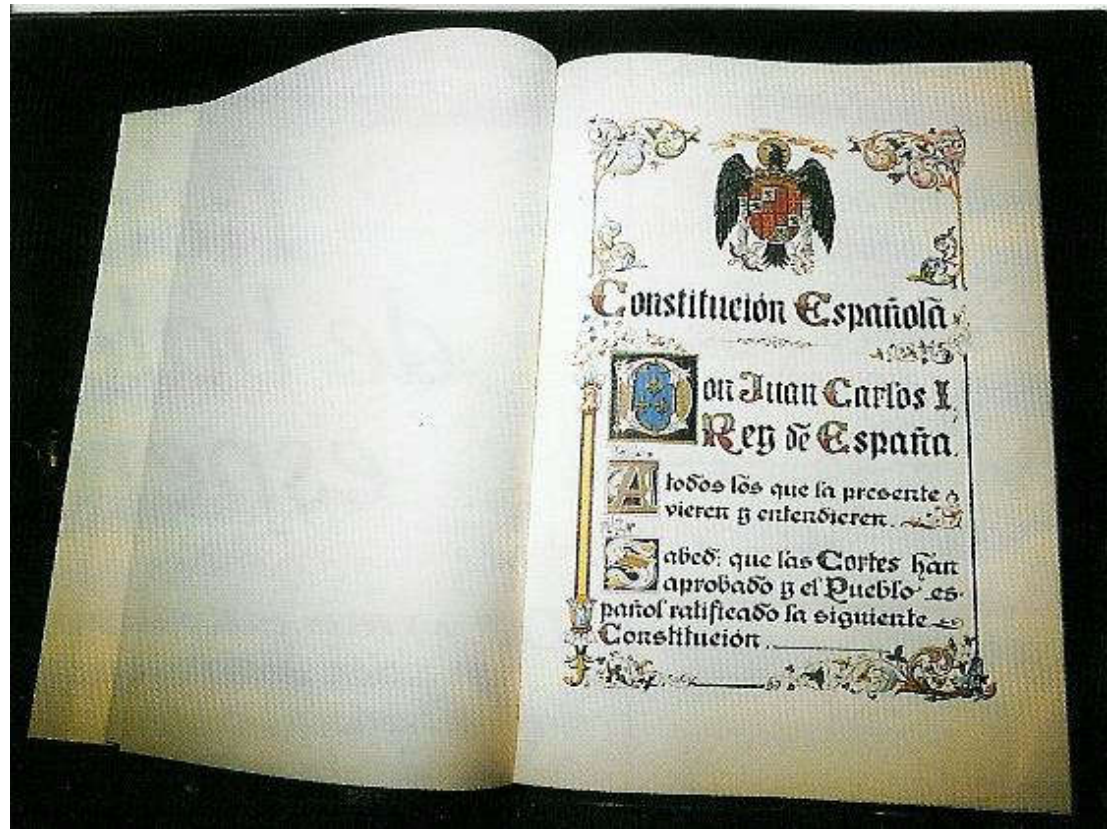 Constitución Española
Don Juan Carlos I,
Rey de España.
A todos los que la presente
vieren y entendieren.
Sabed: que las Cortes han
aprobado y el Pueblo es-
pañol ratificado la siguiente
Constitución.